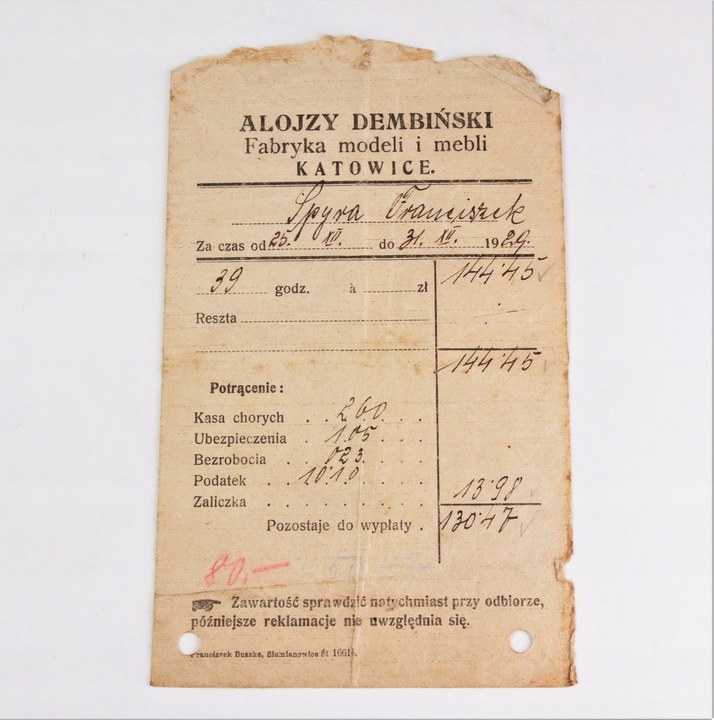 ALOJZY DEMBIŃSKI
Fabryka modeli i mebli
KATOWICE.
Spyra Franciszek
Za czas od 25. XII. do 31. XII. 1929.
39 godz. à zł 144·45
Reszta
144·45
Potrącenie:
Kasa chorych 2 60
Ubezpieczenia 1.05
Bezrobocia 023
Podatek 10·10
Zaliczka 13·98
Pozostaje do wypłaty 130·47
80.—
Zawartość sprawdzić natychmiast przy odbiorze,
późniejsze reklamacje nie uwzględnia się.
Franciszek Buszka, Siemianowice Śl 16614.